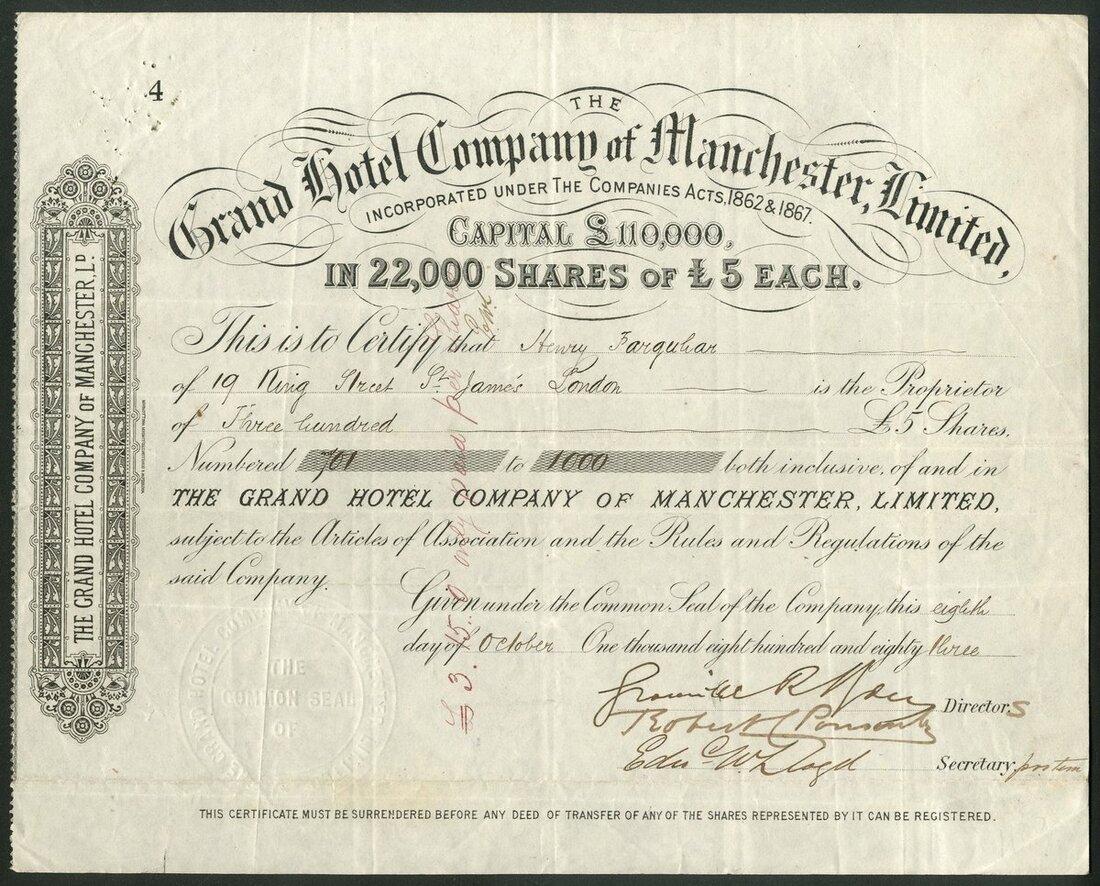 4
THE
Grand Hotel Company of Manchester, Limited,
INCORPORATED UNDER THE COMPANIES ACTS, 1862 & 1867.
CAPITAL £110,000,
IN 22,000 SHARES OF £5 EACH.
This is to Certify that Henry Farquhar
of 19 King Street St. James's London is the Proprietor
of Three hundred £5 Shares.
Numbered 701 to 1000 both inclusive, of and in
THE GRAND HOTEL COMPANY OF MANCHESTER, LIMITED,
subject to the Articles of Association and the Rules and Regulations of the
said Company.
Given under the Common Seal of the Company, this eighth
day of October One thousand eight hundred and eighty three
Directors
Robert
Edw. W. Lloyd Secretary pro tem
THIS CERTIFICATE MUST BE SURRENDERED BEFORE ANY DEED OF TRANSFER OF ANY OF THE SHARES REPRESENTED BY IT CAN BE REGISTERED.
THE GRAND HOTEL COMPANY OF MANCHESTER, LD.
£3.15.0 only paid per
THE
COMMON SEAL
OF